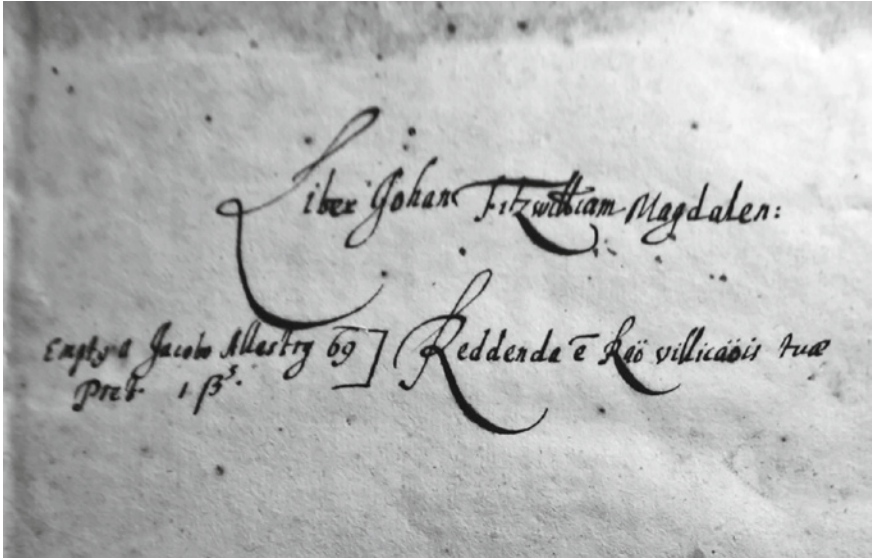 Liber Johan Fitzwilliam Magdalen:
Empt. a Jacobo Allestry 69] Reddenda ē Raö villicaöis tuæ
Pret. 1 ß